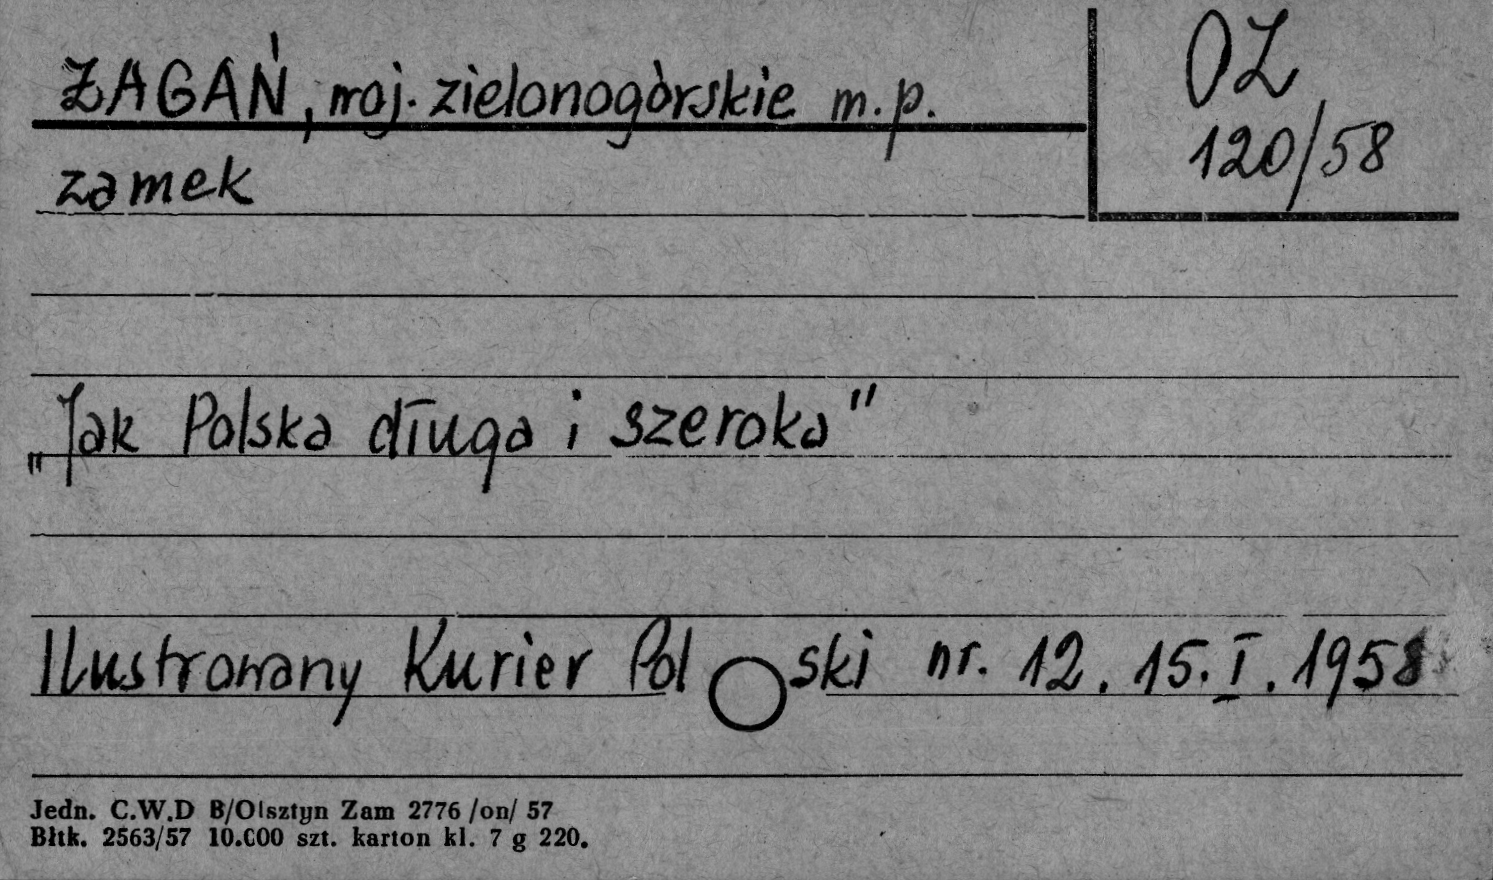 ŻAGAŃ, woj. zielonogórskie m.p.
OZ
120/58
zamek
„Jak Polska długa i szeroka"
Ilustrowany Kurier Polski nr. 12. 15.I.1958
Jedn. C.W.D B/Olsztyn Zam 2776 /on/ 57
Błtk. 2563/57 10.000 szt. karton kl. 7 g 220.